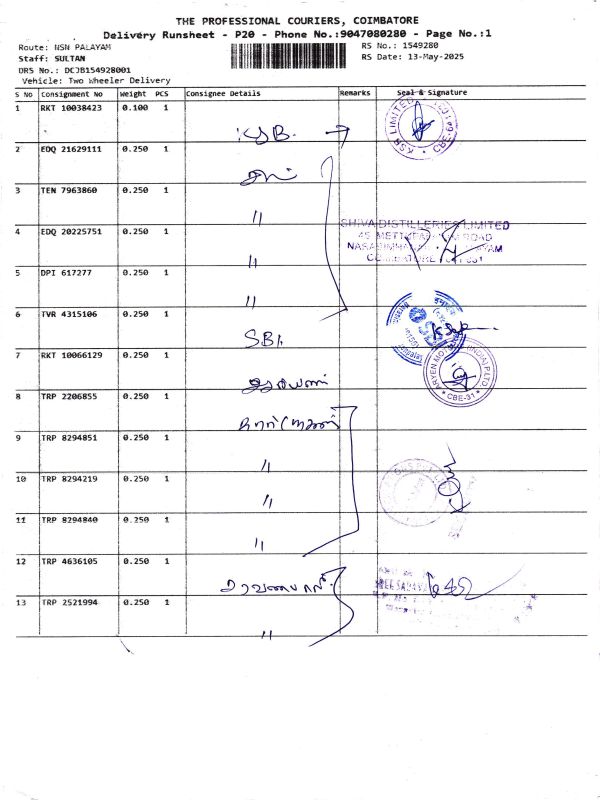 THE PROFESSIONAL COURIERS, COIMBATORE
Delivery Runsheet - P20 - Phone No.:9047080280 - Page No.:1
Route: NSN PALAYAM
RS No.: 1549280
Staff: SULTAN
RS Date: 13-May-2025
DRS No.: DCJB154928001
Vehicle: Two Wheeler Delivery
S No Consignment No Weight PCS Consignee Details Remarks Seal & Signature
1 RKT 10038423 0.100 1
KSR LIMITED
2 EDQ 21629111 0.250 1
3 TEN 7963860 0.250 1
"
SHIVA DISTILLERIES LIMITED
4 EDQ 20225751 0.250 1
"
5 DPI 617277 0.250 1
"
6 TVR 4315106 0.250 1
SBI.
7 RKT 10066129 0.250 1
CBE-31
8 TRP 2206855 0.250 1
9 TRP 8294851 0.250 1
"
10 TRP 8294219 0.250 1
"
11 TRP 8294840 0.250 1
"
12 TRP 4636105 0.250 1
13 TRP 2521994 0.250 1
"